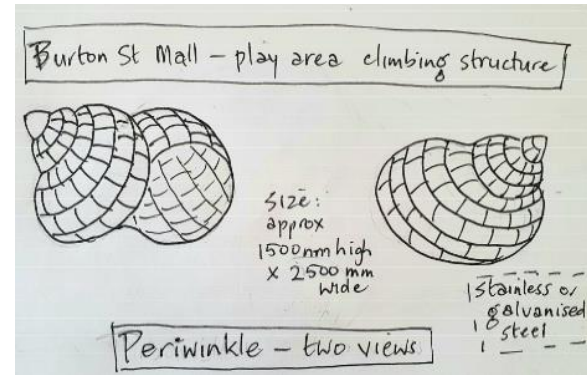 Burton St Mall – play area climbing structure
SIZE:
approx
1500mm high
x 2500 mm
wide
Stainless or
galvanised
steel
Periwinkle – two views